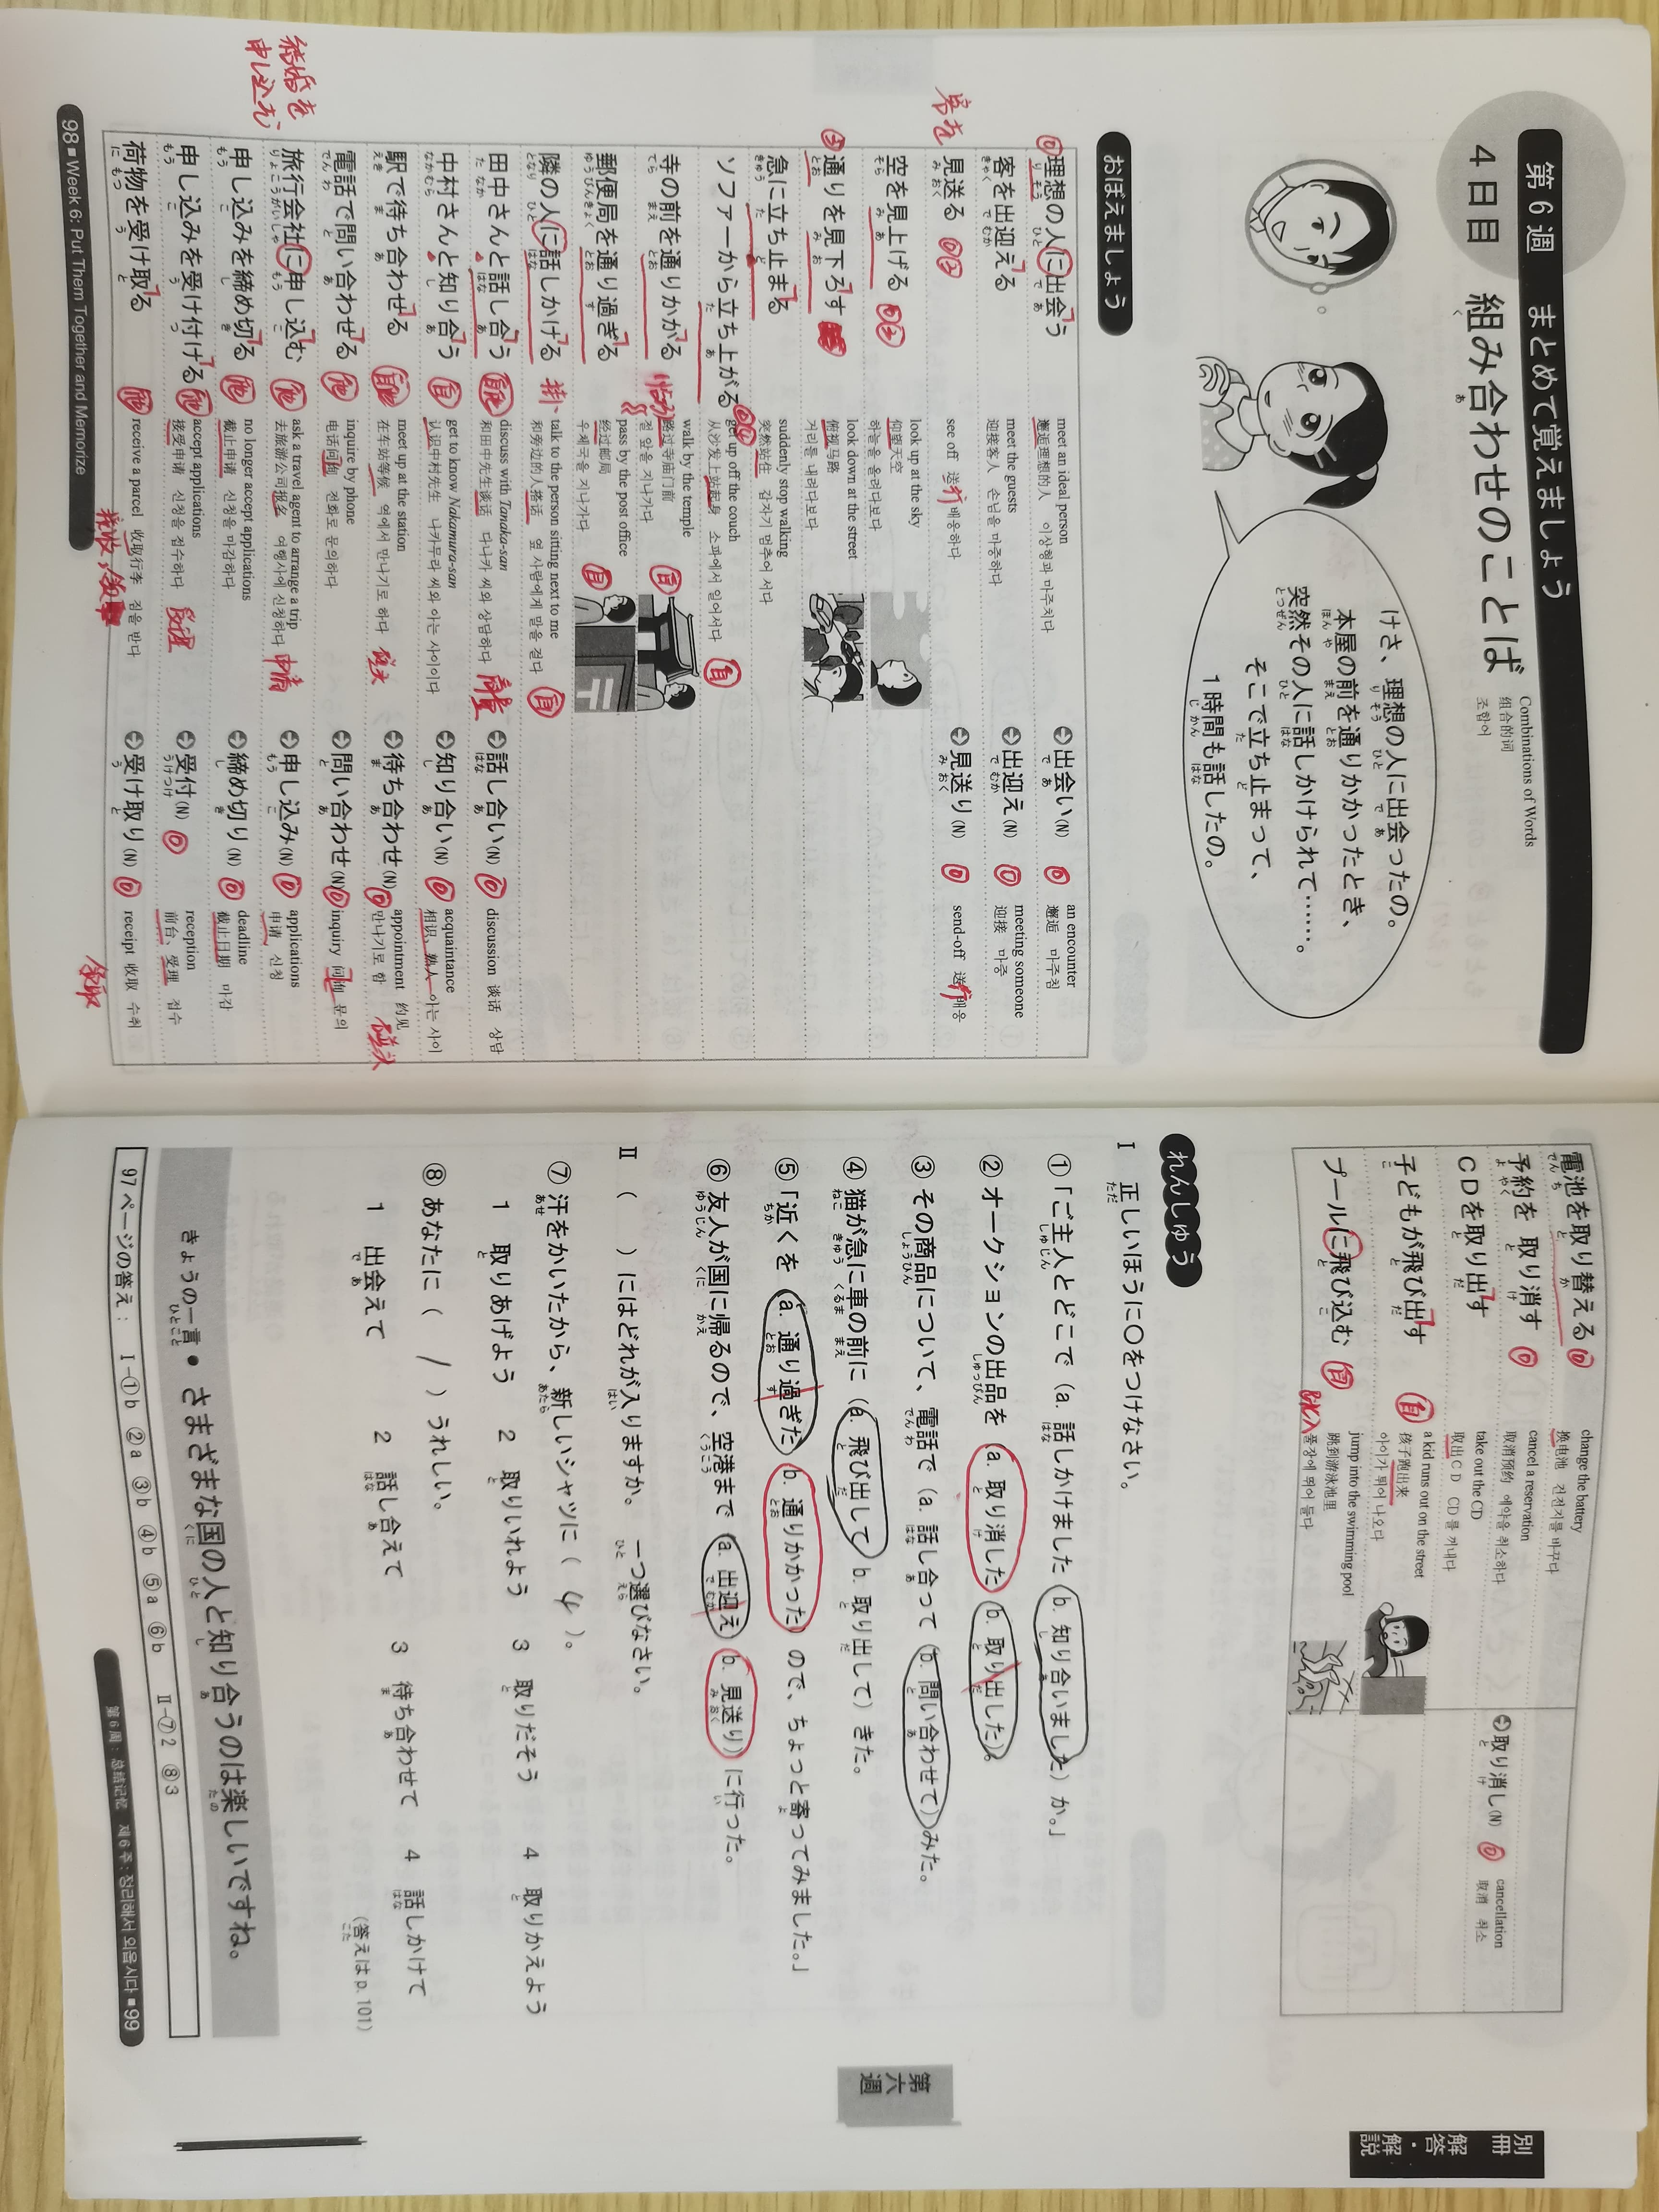 第6週 まとめて覚えましょう
4日目 組み合わせのことば
Combinations of Words
组合的词
조합어
けさ、理想の人に出会ったの。
本屋の前を通りかかったとき、
突然その人に話しかけられて……。
そこで立ち止まって、
1時間も話したの。
おぼえましょう
理想の人に出会う meet an ideal person 邂逅理想的人 이상형과 마주치다 出会い(N) an encounter 邂逅 마주침
客を出迎える meet the guests 迎接客人 손님을 마중하다 出迎え(N) meeting someone 迎接 마중
客を 見送る see off 送行 배웅하다 見送り(N) send-off 送行 배웅
空を見上げる look up at the sky 仰望天空 하늘을 올려다보다
通りを見下ろす look down at the street 俯视马路 거리를 내려다보다
急に立ち止まる suddenly stop walking 突然站住 갑자기 멈추어 서다
ソファーから立ち上がる get up off the couch 从沙发上站起身 소파에서 일어서다 自
寺の前を通りかかる walk by the temple 路过寺庙门前 절 앞을 지나가다 自
郵便局を通り過ぎる pass by the post office 经过邮局 우체국을 지나가다 自
隣の人に話しかける talk to the person sitting next to me 和旁边的人搭话 옆 사람에게 말을 걸다 自
田中さんと話し合う discuss with Tanaka-san 和田中先生谈话 다나카 씨와 상담하다 商量 話し合い(N) discussion 谈话 상담
中村さんと知り合う 自 get to know Nakamura-san 认识中村先生 나카무라 씨와 아는 사이이다 知り合い(N) acquaintance 相识、熟人 아는 사이
駅で待ち合わせる meet up at the station 在车站等候 역에서 만나기로 하다 碰头 待ち合わせ(N) appointment 约见 만나기로 함 碰头
電話で問い合わせる 他 inquire by phone 电话问询 전화로 문의하다 問い合わせ(N) inquiry 问询 문의
旅行会社に申し込む 他 ask a travel agent to arrange a trip 去旅游公司报名 여행사에 신청하다 申请 申し込み(N) applications 申请 신청
結婚を
申し込む
申し込みを締め切る 他 no longer accept applications 截止申请 신청을 마감하다 締め切り(N) deadline 截止日期 마감
申し込みを受け付ける 他 accept applications 接受申请 신청을 접수하다 受理 受付(N) reception 前台、受理 접수
荷物を受け取る 他 receive a parcel 收取行李 짐을 받다 受け取り(N) receipt 收取 수취
接收,
领取
98■Week 6: Put Them Together and Memorize
電池を取り替える change the battery 换电池 건전지를 바꾸다
予約を取り消す cancel a reservation 取消预约 예약을 취소하다 取り消し(N) cancellation 取消 취소
CDを取り出す take out the CD 取出CD CD를 꺼내다
子どもが飛び出す 自 a kid runs out on the street 孩子跑出来 아이가 뛰어 나오다
プールに飛び込む 自 jump into the swimming pool 跳到游泳池里 풀장에 뛰어 들다
れんしゅう
Ⅰ 正しいほうに○をつけなさい。
①「ご主人とどこで(a. 話しかけました b. 知り合いました)か。」
②オークションの出品を(a. 取り消した b. 取り出した)。
③その商品について、電話で(a. 話し合って b. 問い合わせて)みた。
④猫が急に車の前に(a. 飛び出して b. 取り出して)きた。
⑤「近くを(a. 通り過ぎた b. 通りかかった)ので、ちょっと寄ってみました。」
⑥友人が国に帰るので、空港まで(a. 出迎え b. 見送り)に行った。
Ⅱ ( )にはどれが入りますか。一つ選びなさい。
⑦汗をかいたから、新しいシャツに( 4 )。
1 取りあげよう 2 取りいれよう 3 取りだそう 4 取りかえよう
⑧あなたに( 1 )うれしい。
1 出会えて 2 話し合えて 3 待ち合わせて 4 話しかけて
(答えはp.101)
きょうの一言● さまざまな国の人と知り合うのは楽しいですね。
97ページの答え: Ⅰ-①b ②a ③b ④b ⑤a ⑥b Ⅱ-⑦2 ⑧3
第6周:总结记忆 제6주:정리해서 외웁시다■99
第六週
別冊
解答・解説